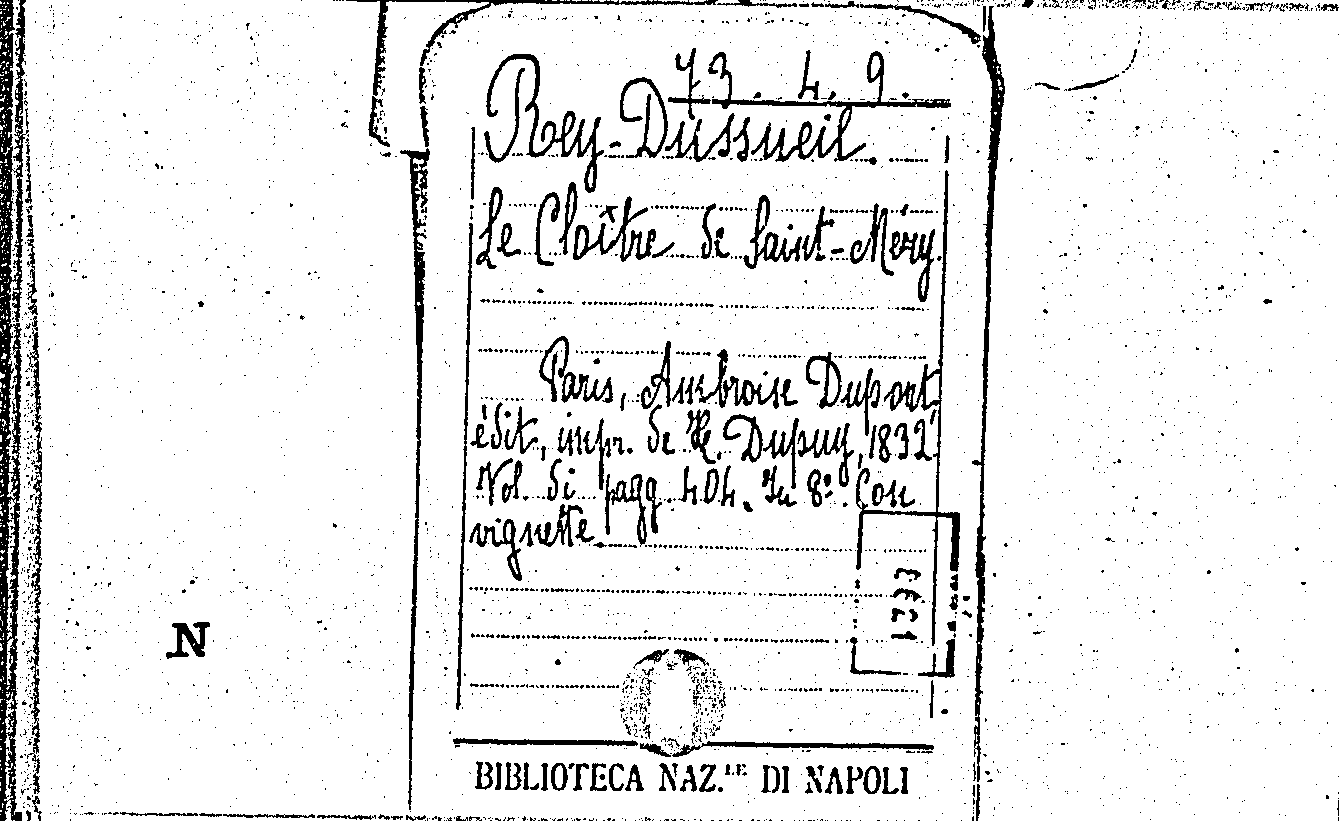 73. 4. 9.
Rey-Dussueil.
Le Cloître de Saint-Méry.
Paris, Ambroise Dupont
édit., impr. de H. Dupuy, 1832.
Vol. di pagg. 404. In 8º. Con
vignette.
N
BIBLIOTECA NAZ.LE DI NAPOLI